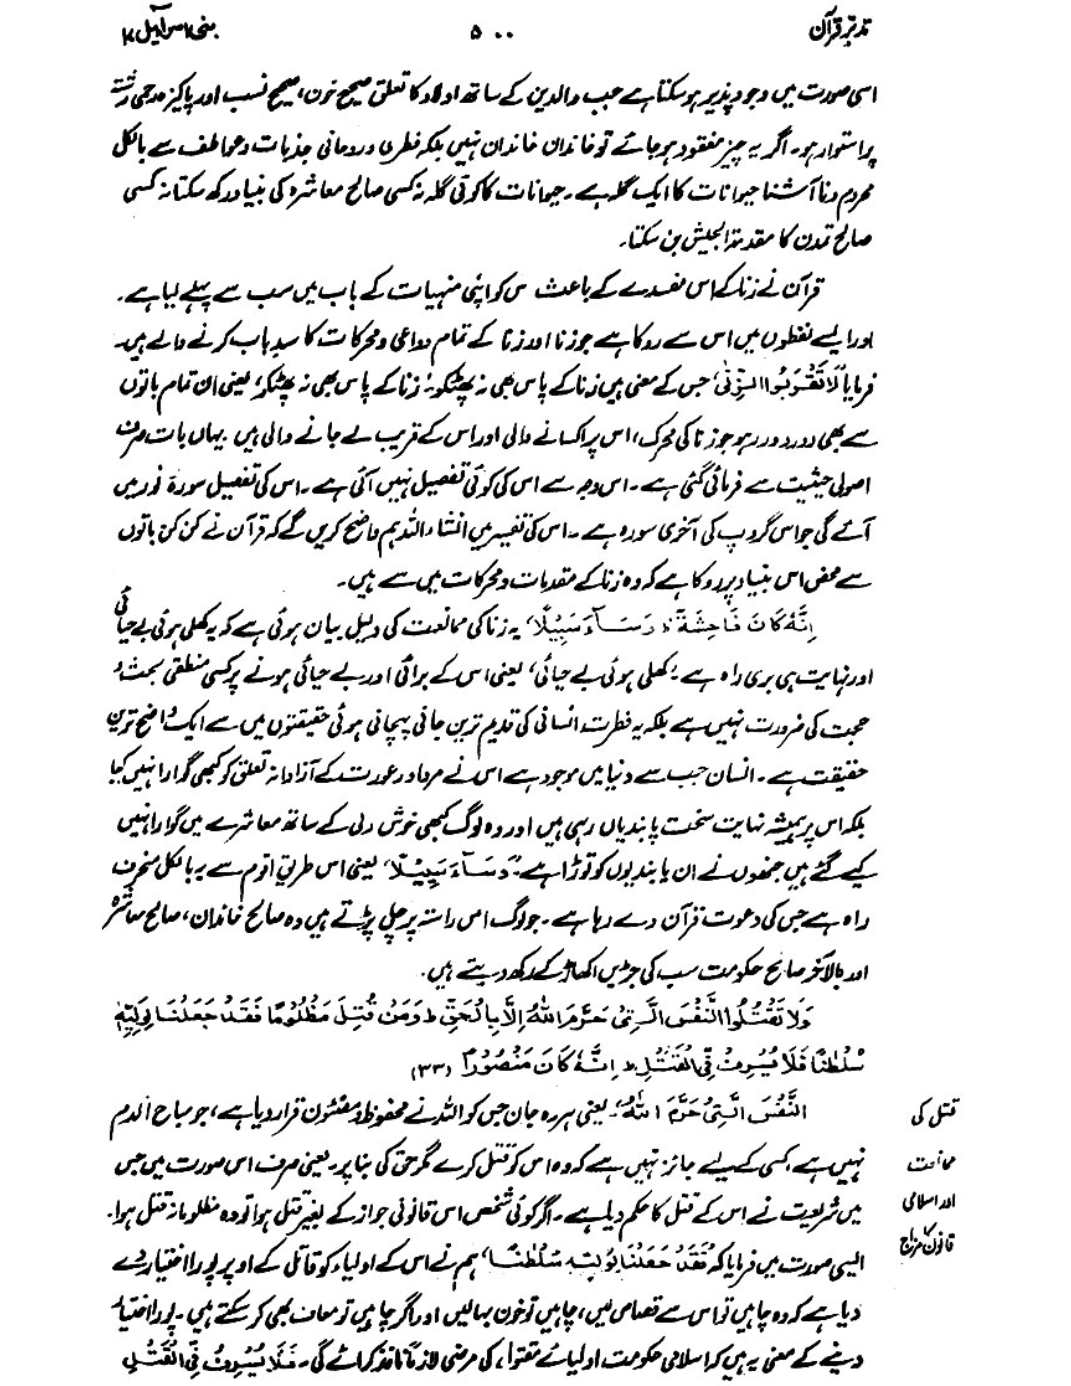 تدبر قرآن ۵۰۰ بنی اسرآءیل ۱۷
اسی صورت میں وجود پذیر ہو سکتا ہے جب والدین کے ساتھ اولاد کا تعلق صحیح خون، صحیح نسب اور پاکیزہ رحمی رشتے
پر استوار ہو۔ اگر یہ چیز مفقود ہو جائے تو خاندان خاندان نہیں بلکہ فطری و رومانی جذبات و عواطف سے بالکل
محروم و ناآشنا حیوانات کا ایک گلہ ہے۔ حیوانات کا کوئی گلہ نہ کسی صالح معاشرہ کی بنیاد رکھ سکتا نہ کسی
صالح تمدن کا مقدمۃ الجیش بن سکتا۔
قرآن نے زنا کے اس مفسدے کے باعث اس کو اپنی منہیات کے باب میں سب سے پہلے لیا ہے۔
اور ایسے لفظوں میں اس سے روکا ہے جو زنا اور زنا کے تمام دواعی و محرکات کا سدِباب کرنے والے ہیں۔
فرمایا لَا تَقْرَبُوا الزِّنٰی، جس کے معنی ہیں زنا کے پاس بھی نہ پھٹکو۔ 'زنا کے پاس بھی نہ پھٹکو'، یعنی ان تمام باتوں
سے بھی دور دور رہو جو زنا کی محرک، اس پر اکسانے والی اور اس کے قریب لے جانے والی ہیں یہاں بات صرف
اصولی حیثیت سے فرمائی گئی ہے۔ اس وجہ سے اس کی کوئی تفصیل نہیں آئی ہے۔ اس کی تفصیل سورۃ نور میں
آئے گی جو اس گروپ کی آخری سورہ ہے۔ اس کی تفسیر میں انشاء اللہ ہم واضح کریں گے کہ قرآن نے کن کن باتوں
سے محض اس بنیاد پر روکا ہے کہ وہ زنا کے مقدمات و محرکات میں سے ہیں۔
اِنَّهٗ كَانَ فَاحِشَةً ؕ وَسَآءَ سَبِيْلًا، یہ زنا کی ممانعت کی دلیل بیان ہوئی ہے کہ یہ کھلی ہوئی بے حیائی
اور نہایت ہی بری راہ ہے۔ 'کھلی ہوئی بے حیائی'، یعنی اس کے برائی اور بے حیائی ہونے پر کسی منطقی بحث و
حجت کی ضرورت نہیں ہے بلکہ یہ فطرت انسانی کی قدیم ترین جانی پہچانی ہوئی حقیقتوں میں سے ایک واضح ترین
حقیقت ہے۔ انسان جب سے دنیا میں موجود ہے اس نے مرد اور عورت کے آزادانہ تعلق کو کبھی گوارا نہیں کیا
بلکہ اس پر ہمیشہ نہایت سخت پابندیاں رہی ہیں اور وہ لوگ کبھی خوش دلی کے ساتھ معاشرے میں گوارا نہیں
کیے گئے ہیں جنھوں نے ان پابندیوں کو توڑا ہے۔ وَسَآءَ سَبِيْلًا، یعنی اس طریق اقوم سے یہ بالکل منحرف
راہ ہے جس کی دعوت قرآن دے رہا ہے۔ جو لوگ اس راستہ پر چل پڑتے ہیں وہ صالح خاندان، صالح معاشرہ
اور بالآخر صالح حکومت سب کی جڑیں اکھاڑ کے رکھ دیتے ہیں۔
وَلَا تَقْتُلُوا النَّفْسَ الَّتِیْ حَرَّمَ اللّٰهُ اِلَّا بِالْحَقِّ ؕ وَمَنْ قُتِلَ مَظْلُوْمًا فَقَدْ جَعَلْنَا لِوَلِیِّهٖ
سُلْطٰنًا فَلَا یُسْرِفْ فِّی الْقَتْلِ ؕ اِنَّهٗ كَانَ مَنْصُوْرًا (۳۳)
قتل کی
ممانعت
اور اسلامی
قانون کا مزاج
النَّفْسَ الَّتِیْ حَرَّمَ اللّٰهُ، یعنی ہر وہ جان جس کو اللہ نے محفوظ و مصئون قرار دیا ہے، جو مباح الدم
نہیں ہے، کسی کے لیے جائز نہیں ہے کہ وہ اس کو قتل کرے مگر حق کی بنا پر۔ یعنی صرف اس صورت میں جس
میں شریعت نے اس کے قتل کا حکم دیا ہے۔ اگر کوئی شخص اس قانونی جواز کے بغیر قتل ہوا تو وہ مظلومانہ قتل ہوا۔
ایسی صورت میں فرمایا کہ فَقَدْ جَعَلْنَا لِوَلِیِّهٖ سُلْطٰنًا، ہم نے اس کے اولیاء کو قاتل کے اوپر پورا اختیار دے
دیا ہے کہ وہ چاہیں تو اس سے قصاص لیں، چاہیں تو خون بہا لیں اور اگر چاہیں تو معاف بھی کر سکتے ہیں۔ پورا اختیار
دینے کے معنی یہ ہیں کہ اسلامی حکومت اولیائے مقتول کی مرضی لازماً نافذ کرائے گی۔ فَلَا یُسْرِفْ فِّی الْقَتْلِ